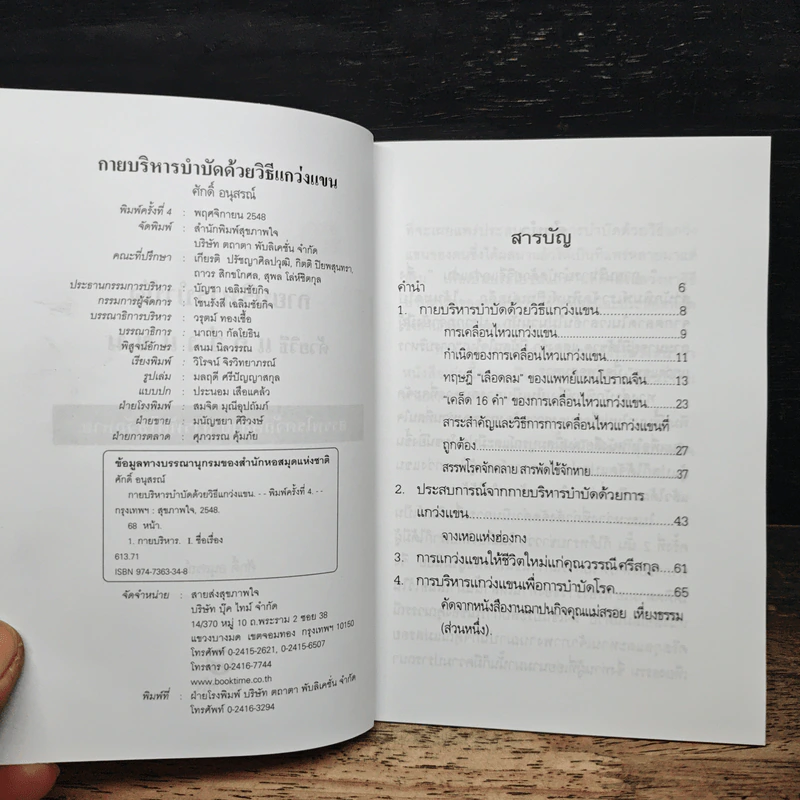 กายบริหารบำบัดด้วยวิธีแกว่งแขน
ศักดิ์ อนุสรณ์
พิมพ์ครั้งที่ 4 : พฤศจิกายน 2548
จัดพิมพ์ : สำนักพิมพ์สุขภาพใจ
บริษัท ตถาตา พับลิเคชั่น จำกัด
คณะที่ปรึกษา : เกียรติ ปรัชญาศิลปวุฒิ, กิตติ ปิยพสุนทรา,
ถาวร สิกขโกศล, สุพล โล่ห์ชิตกุล
ประธานกรรมการบริหาร : บัญชา เฉลิมชัยกิจ
กรรมการผู้จัดการ : โชนรังสี เฉลิมชัยกิจ
บรรณาธิการบริหาร : วรุตม์ ทองเชื้อ
บรรณาธิการ : นาถยา กัลโยธิน
พิสูจน์อักษร : สนม นิลวรรณ
เรียงพิมพ์ : วิโรจน์ จิรวิทยาภรณ์
รูปเล่ม : มลฤดี ศรีปัญญาสกุล
แบบปก : ประนอม เสือแคล้ว
ฝ่ายโรงพิมพ์ : สมจิต มุณีอุปถัมภ์
ฝ่ายขาย : มนัญชยา ศิริวงษ์
ฝ่ายการตลาด : ศุภวรรณ คุ้มภัย
ข้อมูลทางบรรณานุกรมของสำนักหอสมุดแห่งชาติ
ศักดิ์ อนุสรณ์
กายบริหารบำบัดด้วยวิธีแกว่งแขน. - - พิมพ์ครั้งที่ 4. - -
กรุงเทพฯ : สุขภาพใจ, 2548.
68 หน้า.
1. กายบริหาร. I. ชื่อเรื่อง
613.71
ISBN 974-7363-34-8
จัดจำหน่าย : สายส่งสุขภาพใจ
บริษัท บุ๊ค ไทม์ จำกัด
14/370 หมู่ 10 ถ.พระราม 2 ซอย 38
แขวงบางมด เขตจอมทอง กรุงเทพฯ 10150
โทรศัพท์ 0-2415-2621, 0-2415-6507
โทรสาร 0-2416-7744
www.booktime.co.th
พิมพ์ที่ : ฝ่ายโรงพิมพ์ บริษัท ตถาตา พับลิเคชั่น จำกัด
โทรศัพท์ 0-2416-3294
สารบัญ
คำนำ 6
1. กายบริหารบำบัดด้วยวิธีแกว่งแขน 8
การเคลื่อนไหวแกว่งแขน 9
กำเนิดของการเคลื่อนไหวแกว่งแขน 11
ทฤษฎี "เลือดลม" ของแพทย์แผนโบราณจีน 13
"เคล็ด 16 คำ" ของการเคลื่อนไหวแกว่งแขน 23
สาระสำคัญและวิธีการการเคลื่อนไหวแกว่งแขนที่
ถูกต้อง 27
สรรพโรคจักคลาย สารพัดไข้จักหาย 37
2. ประสบการณ์จากกายบริหารบำบัดด้วยการ
แกว่งแขน 43
จางเหอแห่งฮ่องกง
3. การแกว่งแขนให้ชีวิตใหม่แก่คุณวรรณี ศรีสกุล 61
4. การบริหารแกว่งแขนเพื่อการบำบัดโรค 65
คัดจากหนังสืองานฌาปนกิจคุณแม่สรอย เที่ยงธรรม
(ส่วนหนึ่ง)